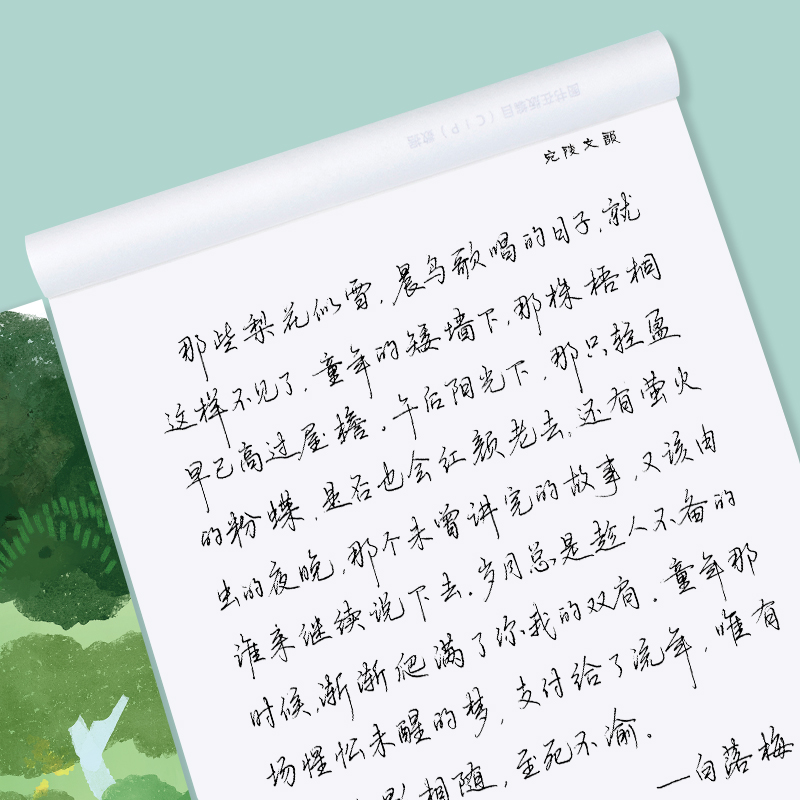 图书在版编目(CIP)数据
宛陵文韵
那些梨花似雪,晨鸟歌唱的日子,就
这样不见了,童年的矮墙下,那株梧桐
早已高过屋檐。午后阳光下,那只轻盈
的粉蝶,是否也会红颜老去,还有萤火
虫的夜晚,那个未曾讲完的故事,又该由
谁来继续说下去。岁月总是趁人不备的
时候,渐渐爬满了你我的双肩。童年那
场惺忪未醒的梦,支付给了流年,唯有
影相随,至死不渝。
—白落梅